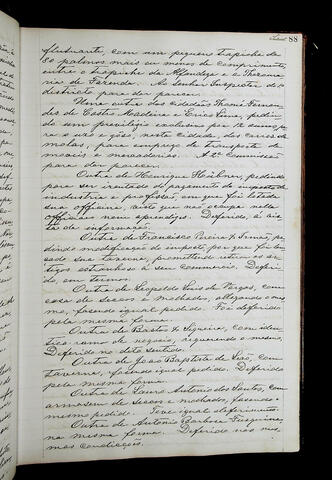 88
fluctuante, com um pequeno trapiche de
80 palmos mais ou menos de comprimento,
entre o trapiche da Alfandega e a Thezoura-
ria de Fazenda. Ao Senhor Inspector do
districto para dar parecer.
Uma outra dos cidadãos Thomé Fernan-
des de Castro Madeira e Lima, pedin-
do um privilegio exclusivo por annos pa-
ra o uso e goso, nesta cidade, dos carros de
molas, para emprego de transporte de
moveis e mercadorias. A 2ª Commissão
para dar parecer.
Outra de Henrique Hübner, pedindo
para ser isentado do pagamento do imposto de
industria e profissão, em que foi lotada
sua officina, visto que não occupa nella
officiaes nem aprendizes. Deferido, á vis-
ta da informação.
Outra de Francisco Pereira & Irmão, pe-
dindo modificação do imposto, por que foi lan-
çado sua taverna, promettendo retirar os ar-
tigos extranhos á seu commercio. Deferi-
do, em termos.
Outra de Leopoldo Luis de Vargas, com
casa de seccos e molhados, allegando o mes-
mo, fazendo igual pedido. Foi deferido
pela mesma forma.
Outra de Bastos & Siqueira, com iden-
tico ramo de negocio, requerendo o mesmo.
Deferido no dito sentido.
Outra de João Baptista de Leão, com
taverna, fazendo igual pedido. Deferido
pela mesma forma.
Outra de Lauro Antonio dos Santos, com
armasem de seccos e molhados, fasendo o
mesmo pedido. Teve igual deferimento.
na mesma forma. Deferido nas mes-
mas condicções.